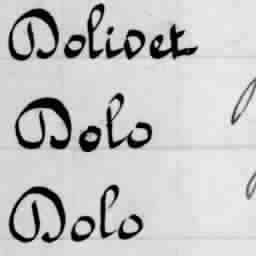 Dolivet
Dolo
Dolo